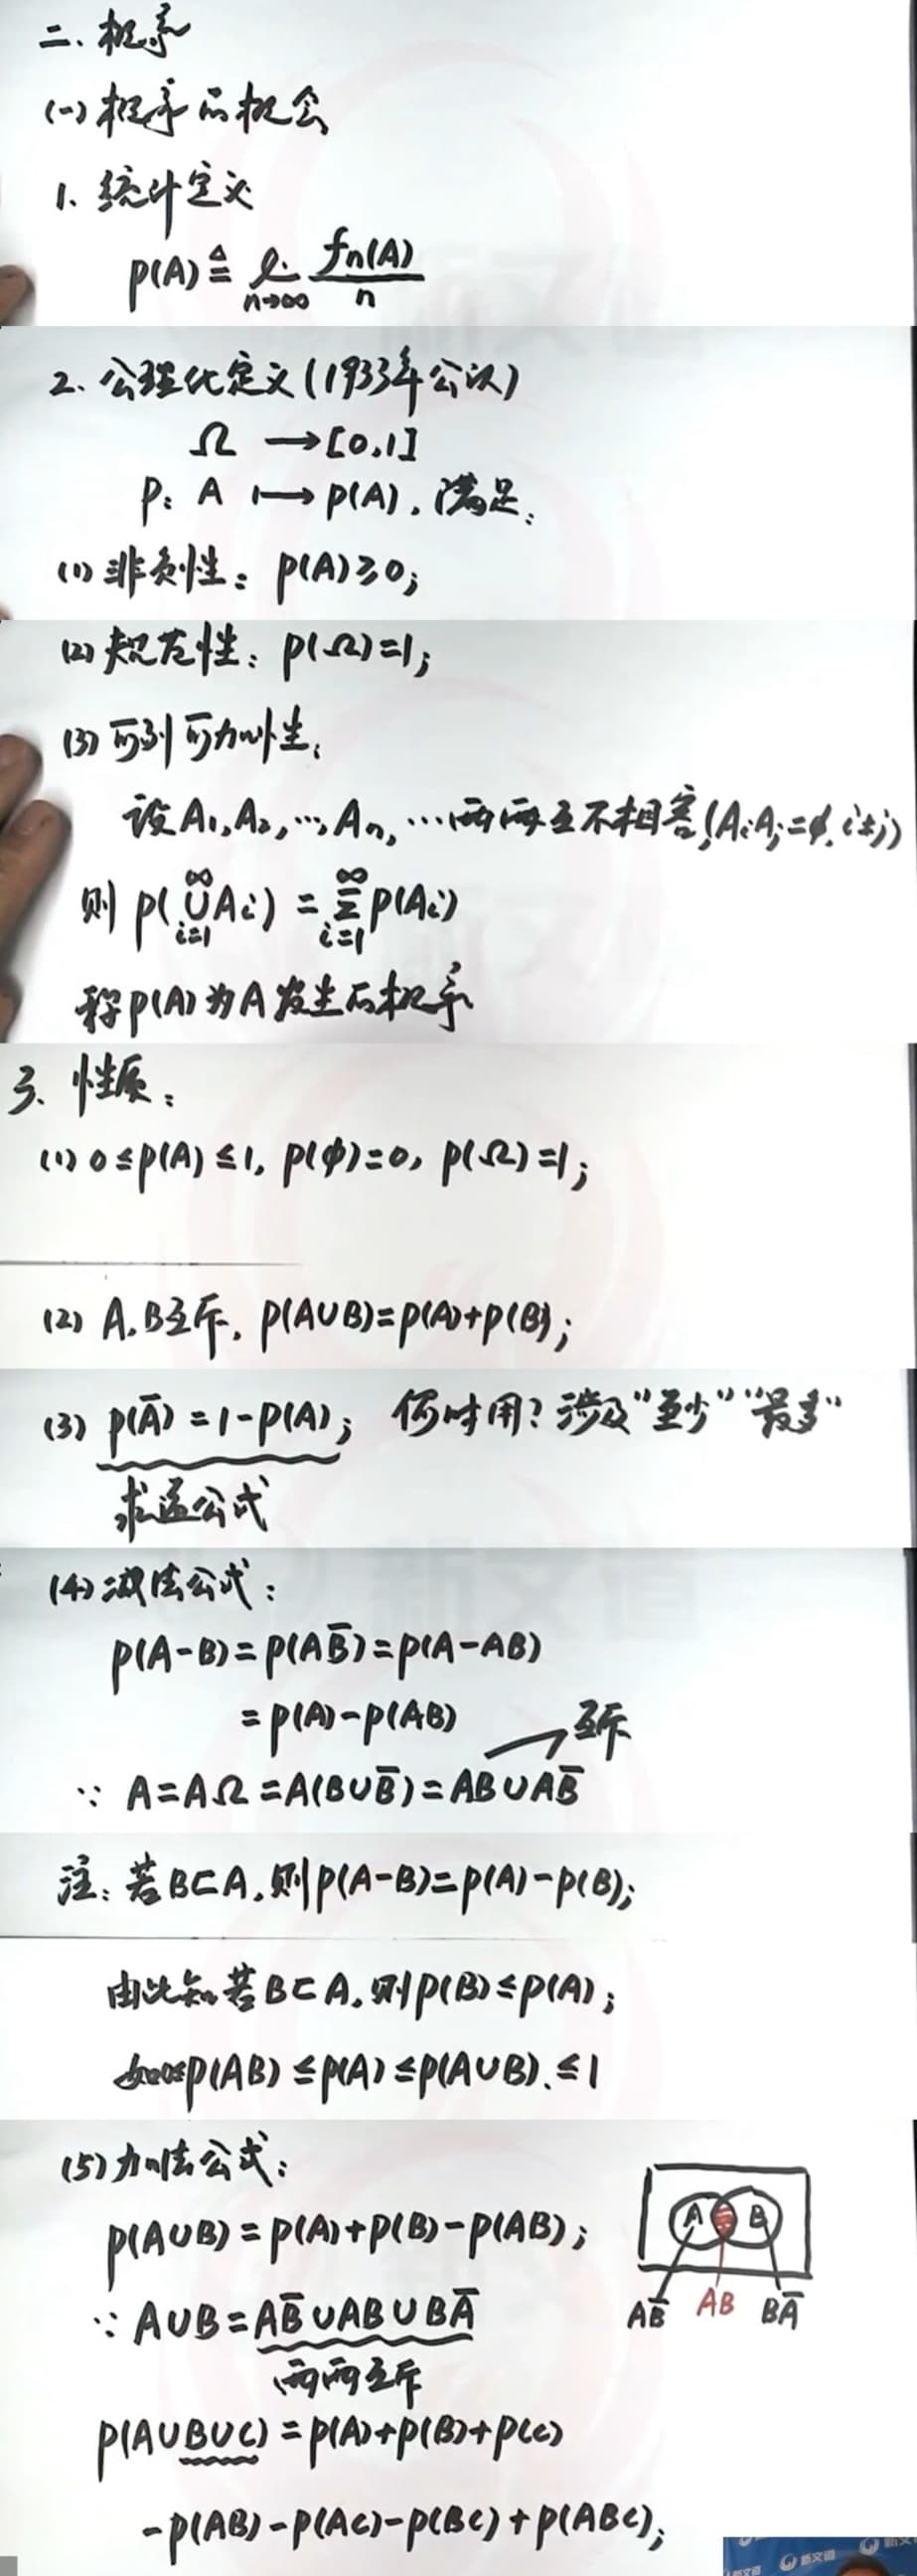 二、概率
(一) 概率的概念
1、统计定义
P(A) ≜ l. n→∞ fn(A)/n
2、公理化定义(1933年公认)
Ω → [0,1]
P: A ↦ P(A), 满足:
(1) 非负性: P(A)≥0;
(2) 规范性: P(Ω)=1;
(3) 可列可加性:
设A₁,A₂,…,Aₙ,…两两互不相容,(AᵢAⱼ=φ, i≠j)
则 P(∪_{i=1}^∞ Aᵢ) = Σ_{i=1}^∞ P(Aᵢ)
称P(A)为A发生的概率
3、性质:
(1) 0≤P(A)≤1, P(φ)=0, P(Ω)=1;
(2) A,B互斥, P(A∪B)=P(A)+P(B);
(3) P(A̅)=1-P(A); 何时用? 涉及"至少""最多"
求逆公式
(4) 减法公式:
P(A-B)=P(AB̅)=P(A-AB)
=P(A)-P(AB)
互斥
∵ A=AΩ=A(B∪B̅)=AB∪AB̅
注: 若B⊂A, 则P(A-B)=P(A)-P(B);
由此知若B⊂A, 则P(B)≤P(A);
P(AB)≤P(A)≤P(A∪B).≤1
(5) 加法公式:
P(A∪B)=P(A)+P(B)-P(AB);
A B
AB̅ AB BA̅
∵ A∪B=AB̅∪AB∪BA̅
两两互斥
P(A∪B∪C)=P(A)+P(B)+P(C)
-P(AB)-P(AC)-P(BC)+P(ABC);
新文道